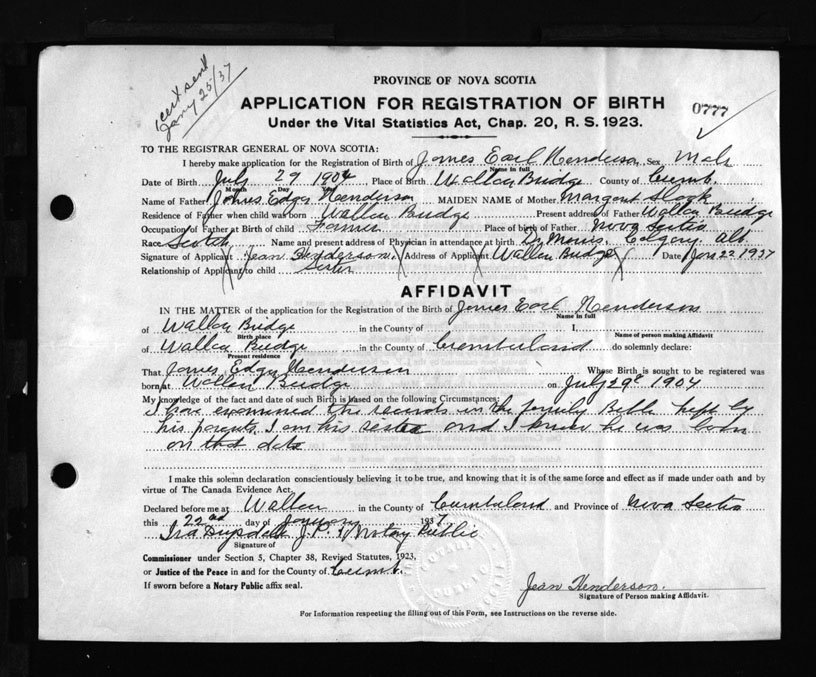 1 cert sent
Jany 25/37
PROVINCE OF NOVA SCOTIA
APPLICATION FOR REGISTRATION OF BIRTH
0777
Under the Vital Statistics Act, Chap. 20, R. S. 1923.
TO THE REGISTRAR GENERAL OF NOVA SCOTIA:
I hereby make application for the Registration of Birth of James Earl Henderson Sex Male
Name in full
Date of Birth July 29 1904 Place of Birth Wallace Bridge County of Cumb.
Month Day
Name of Father James Edgar Henderson MAIDEN NAME of Mother Margaret
Residence of Father when child was born Wallace Bridge Present address of Father Wallace Bridge
Occupation of Father at Birth of child Farmer Place of birth of Father Nova Scotia
Race Scotch Name and present address of Physician in attendance at birth Dr Calgary. Alb
Signature of Applicant Jean Henderson. Address of Applicant Wallace Bridge Date Jan 22 1937
Relationship of Applicant to child Sister
AFFIDAVIT
IN THE MATTER of the application for the Registration of the Birth of James Earl Henderson
Name in full
of Wallace Bridge in the County of I,
Birth place Name of person making Affidavit
of Wallace Bridge in the County of Cumberland do solemnly declare:
Present residence
That James Edgar Henderson Whose Birth is sought to be registered was
born at Wallace Bridge on July 29th 1904
My knowledge of the fact and date of such Birth is based on the following Circumstances:
I have examined the records in the family Bible kept by
his parents. I am his sister and I know he was born
on that date
I make this solemn declaration conscientiously believing it to be true, and knowing that it is of the same force and effect as if made under oath and by
virtue of The Canada Evidence Act.
Declared before me at Wallace in the County of Cumberland and Province of Nova Scotia
this 22nd day of January 1937
Ira J.P. & Notary Public
Signature of
Commissioner under Section 5, Chapter 38, Revised Statutes, 1923,
or Justice of the Peace in and for the County of Cumb.
If sworn before a Notary Public affix seal.
Jean Henderson.
Signature of Person making Affidavit.
For Information respecting the filling out of this Form, see Instructions on the reverse side.